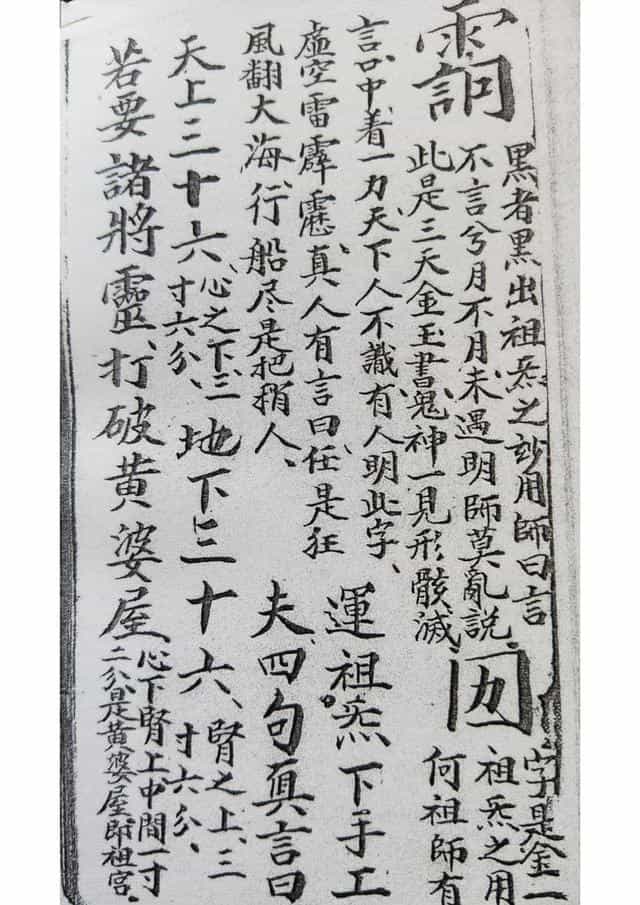 黑者黑出祖炁之玅用師曰言
不言兮月不月、未遇明師莫亂說、
此是三天金玉書、鬼神一見形骸滅、
字是金一
祖炁之用
何祖師有
言口中着一力、天下人不識、有人明此字、
虛空雷霹靂、真人有言曰、任是狂
風翻大海、行船尽是把梢人、
運祖炁下手工
夫四句真言曰
天上三十六、
心之下、三
寸六分、
地下三十六、
腎之上、三
寸六分、
若要諸將靈、打破黃婆屋、
心下腎上、中間一寸
二分、是黃婆屋即祖宮、